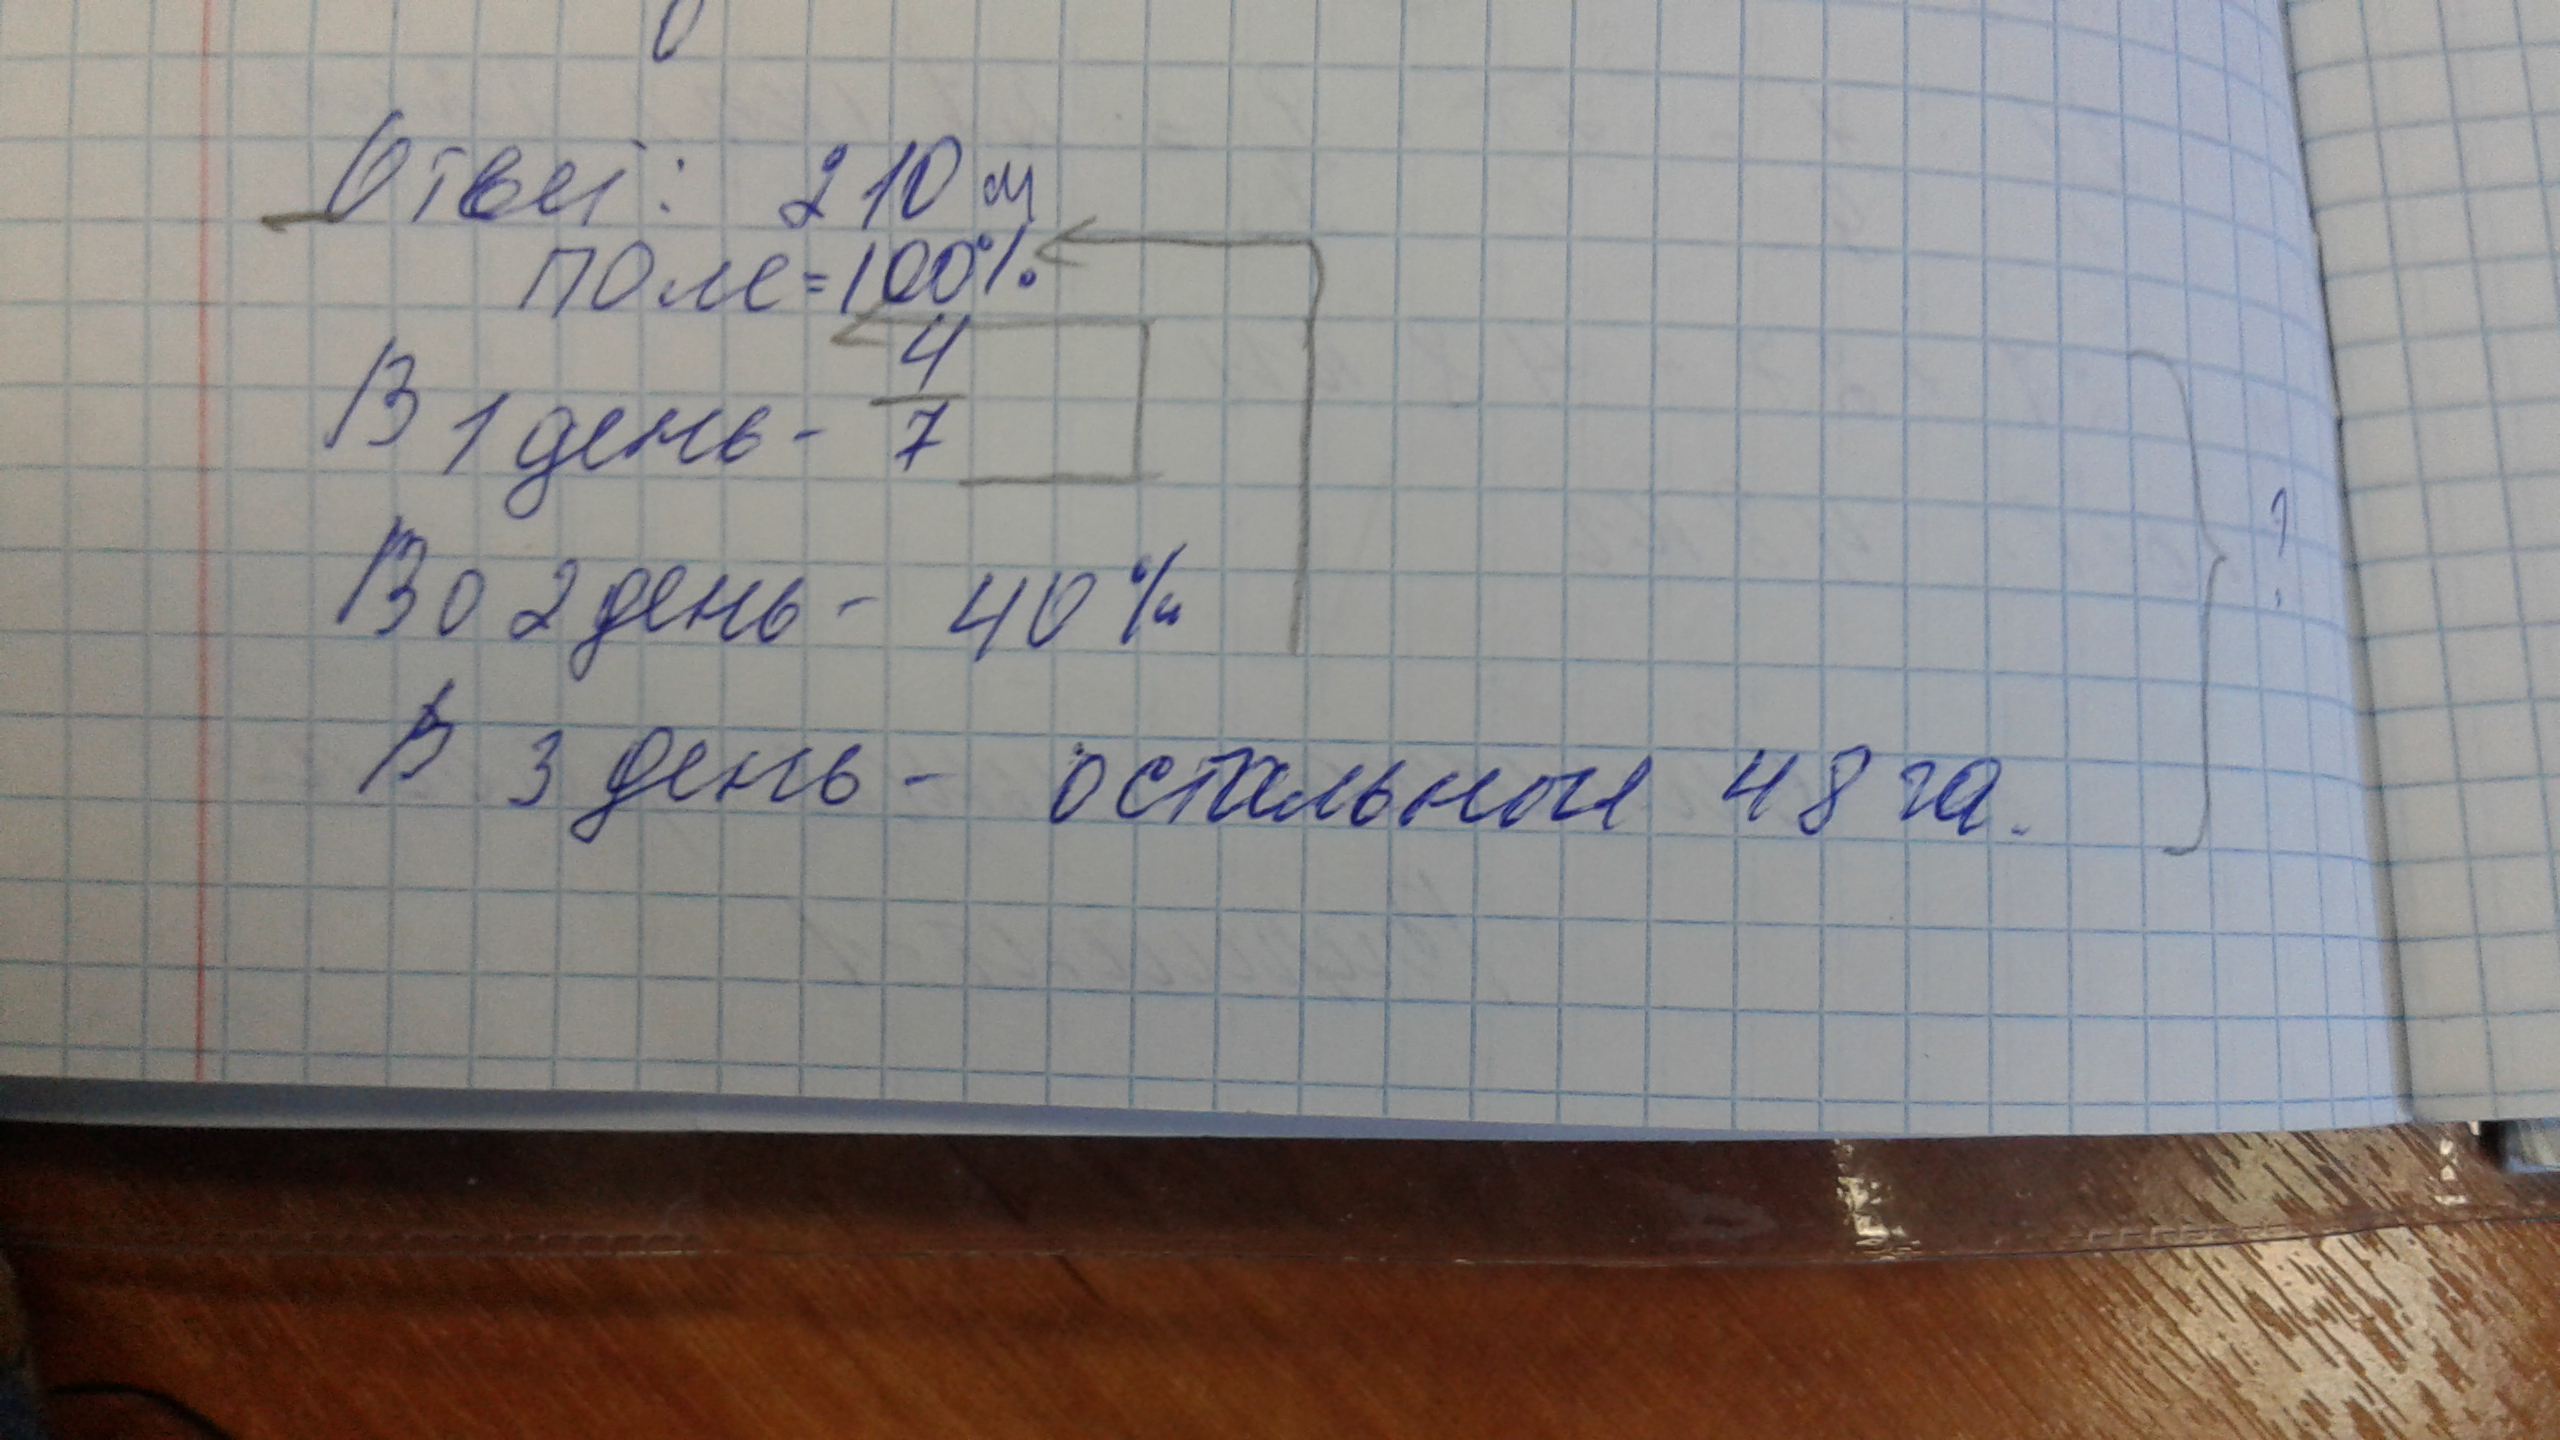 Ответ: 210 м
поле=100%
В 1 день - 4/7
Во 2 день - 40%
В 3 день - остальные 48 га.
?